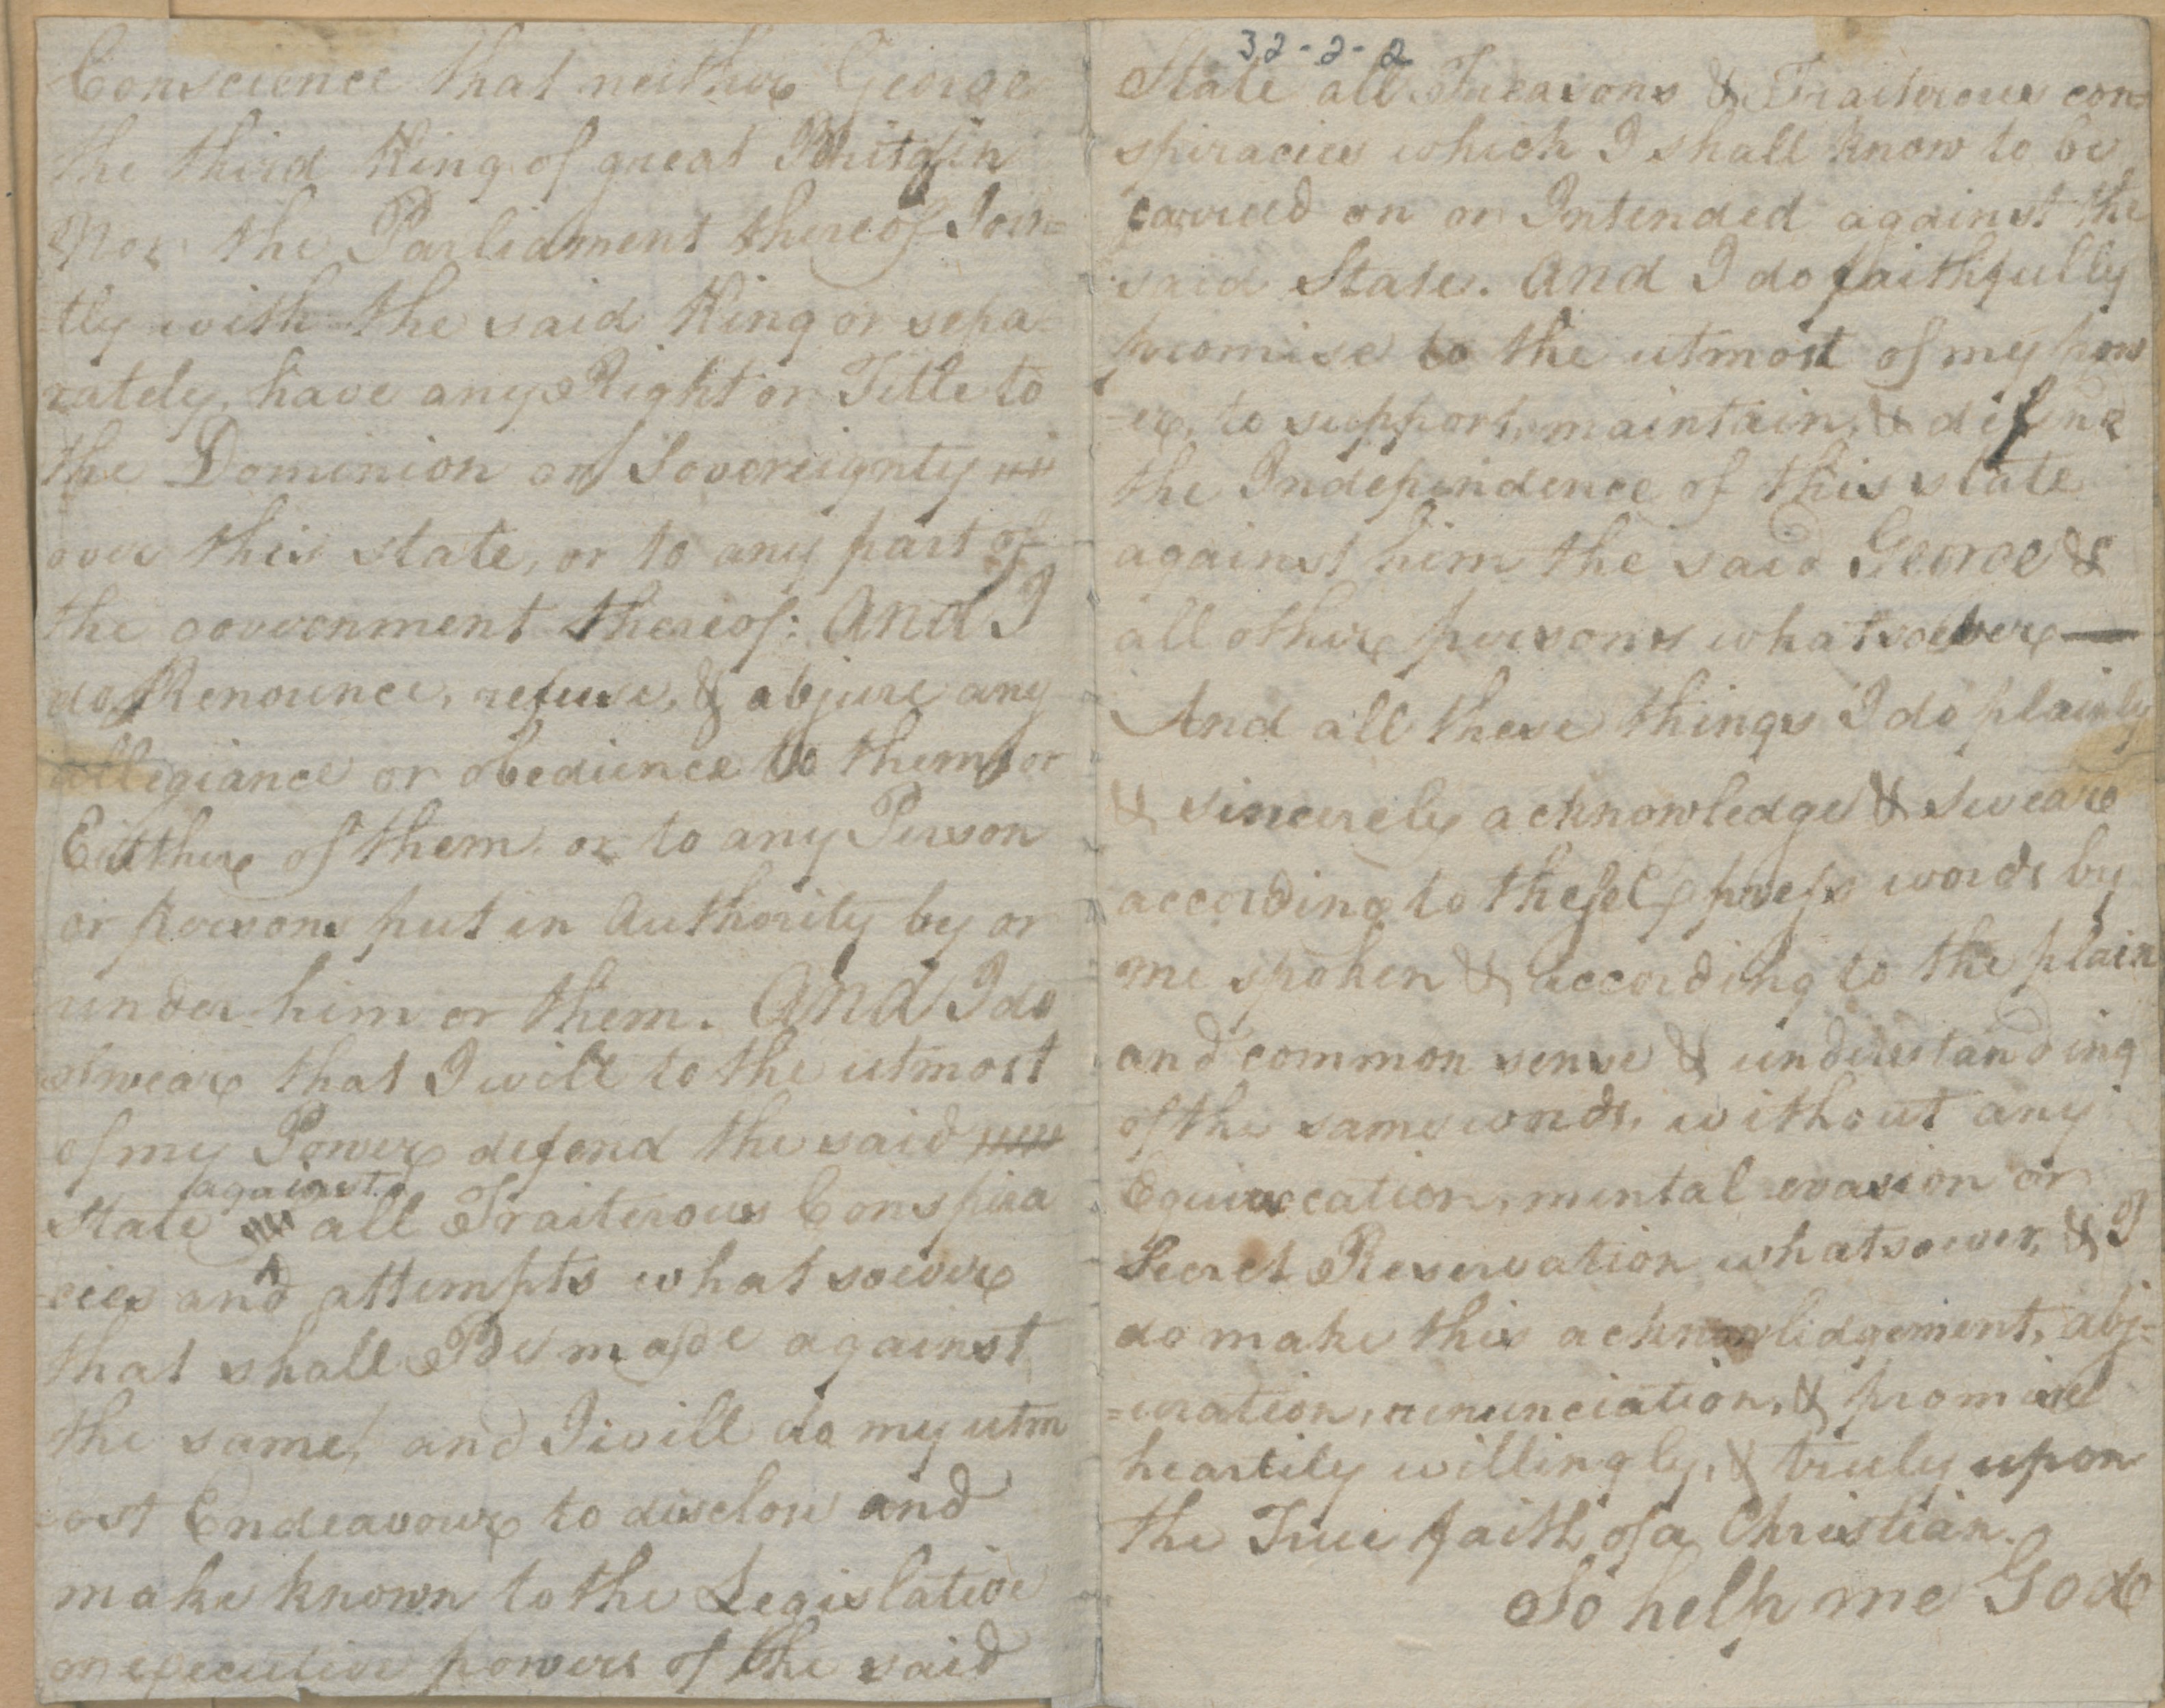 Conscience that neither George
the third King of great Britain
Nor the Parliament thereof Join=
=tly with the said King or sepa=
rately, have any Right or Title to
the Dominion or Sovereignty
over this state, or to any part of
the government thereof: And I
do Renounce, refuse, & abjure any
allegiance or obedience to them or
Eitther of them or to any Person
or persons put in Authority by or
under him or them. And I do
swear that I will to the utmost
of my Power defend the said
against
State all Traiterous Conspira
=cies and attempts whatsoever
that shall Be made against
the same, and I will do my utm
=ost Endeavour to disclose and
make known to the Legislative
or executive powers of the said
32-2-2
State all Treasons & Traiterous con=
spiracies which I shall know to be
carried on or Intended against the
said State. And I do faithfully
promise to the utmost of my pow
=er, to support, maintain, & defend
the Independence of this state
against him the said George &
all other persons whatsoever —
And all these things I do plainly
& sincerely acknowledge & swear
according to these Express words by
me spoken & according to the plain
and common sense & understanding
of the same words, without any
Equivocation, mental evasion or
Secret Reservation whatsoever, & I
do make this acknowlidgement, abj=
=uration, renunciation, & promise
heartily willingly, & truly upon
the True faith of a Christian.
So help me God